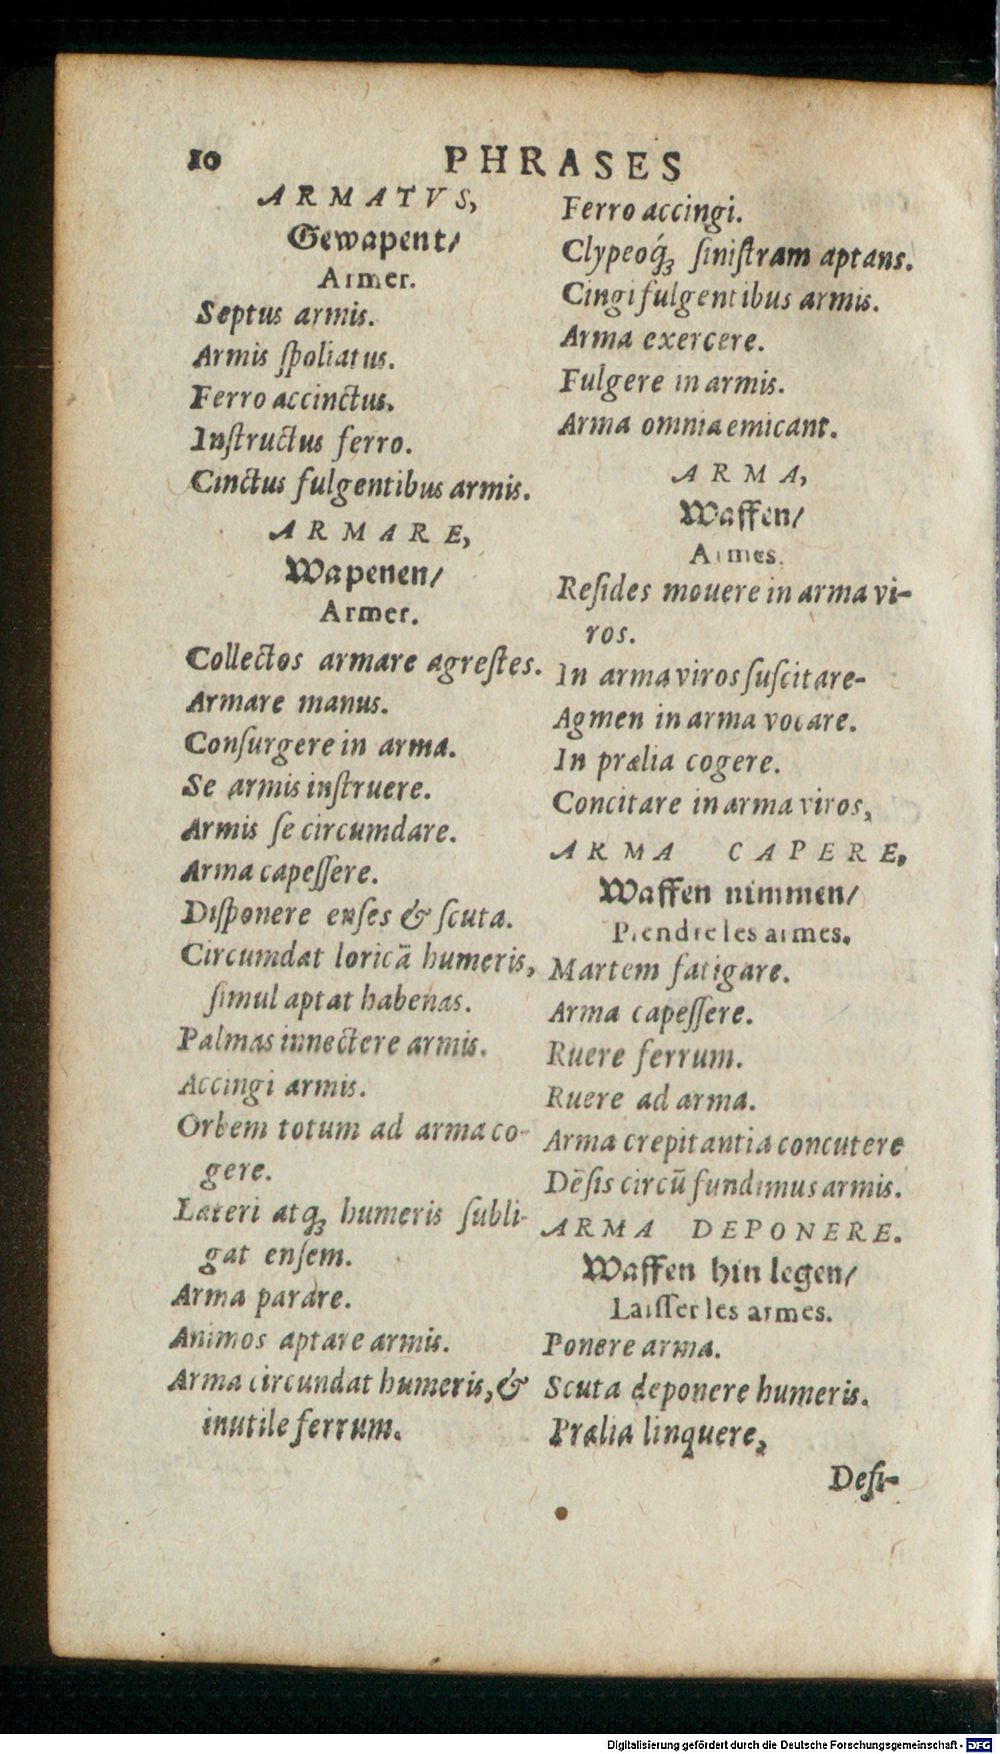 10 PHRASES
ARMATVS,
Gewapent/
Armer.
Septus armis.
Armis ſpoliatus.
Ferro accinctus.
Inſtructus ferro.
Cinctus fulgentibus armis.
ARMARE,
Wapenen/
Armer.
Collectos armare agreſtes.
Armare manus.
Conſurgere in arma.
Se armis inſtruere.
Armis ſe circumdare.
Arma capeſſere.
Diſponere enſes & ſcuta.
Circumdat loricā humeris,
ſimul aptat habenas.
Palmas innectere armis.
Accingi armis.
Orbem totum ad arma co-
gere.
Lateri atq́ꝫ humeris ſubli-
gat enſem.
Arma parare.
Animos aptare armis.
Arma circundat humeris, &
inutile ferrum.
Ferro accingi.
Clypeoq́ꝫ ſiniſtram aptans.
Cingi fulgentibus armis.
Arma exercere.
Fulgere in armis.
Arma omnia emicant.
ARMA,
Waffen/
Armes.
Reſides mouere in arma vi-
ros.
In arma viros ſuſcitare-
Agmen in arma vocare.
In prælia cogere.
Concitare in arma viros,
ARMA CAPERE,
Waffen nimmen/
Prendre les armes.
Martem fatigare.
Arma capeſſere.
Ruere ferrum.
Ruere ad arma.
Arma crepitantia concutere
Dēſis circū fundimus armis.
ARMA DEPONERE.
Waffen hin legen/
Laiſſer les armes.
Ponere arma.
Scuta deponere humeris.
Prælia linquere,
Deſi-
Digitalisierung gefördert durch die Deutsche Forschungsgemeinschaft - DFG